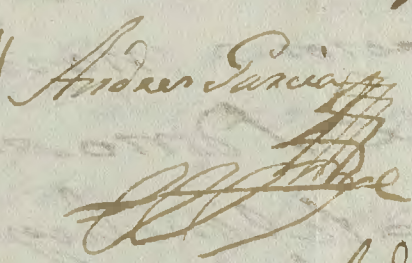 Andres Garcia